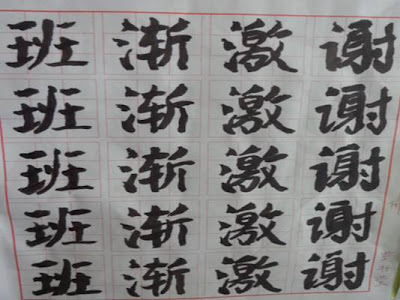 班 渐 激 谢
班 渐 激 谢
班 渐 激 谢
班 渐 激 谢
班 渐 激 谢